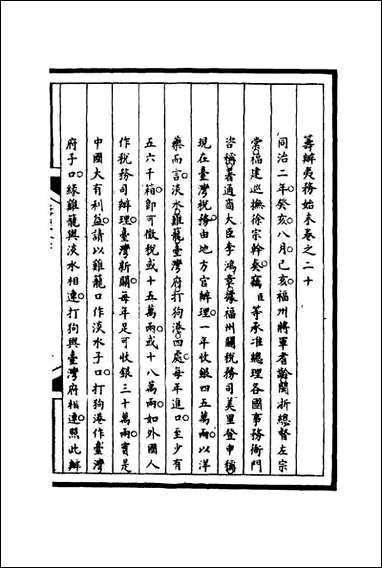 籌辦夷務始末卷之二十
同治二年癸亥八月己亥福州將軍耆齡閩浙總督左宗
棠福建巡撫徐宗幹奏竊臣等承准總理各國事務衙門
咨稱著通商大臣李鴻章據福州關稅務司美里登申稱
現在臺灣稅務由地方官辦理一年收銀四五萬兩以洋
藥而言淡水雞籠臺灣府打狗港四處每年進口至少有
五六千箱即可徵稅或十五萬兩或十八萬兩如外國人
作稅務司辦理臺灣新關每年足可收銀三十萬兩實是
中國大有利益請以雞籠口作淡水子口打狗港作臺灣
府子口緣雞籠與淡水相連打狗與臺灣府相連照此辦